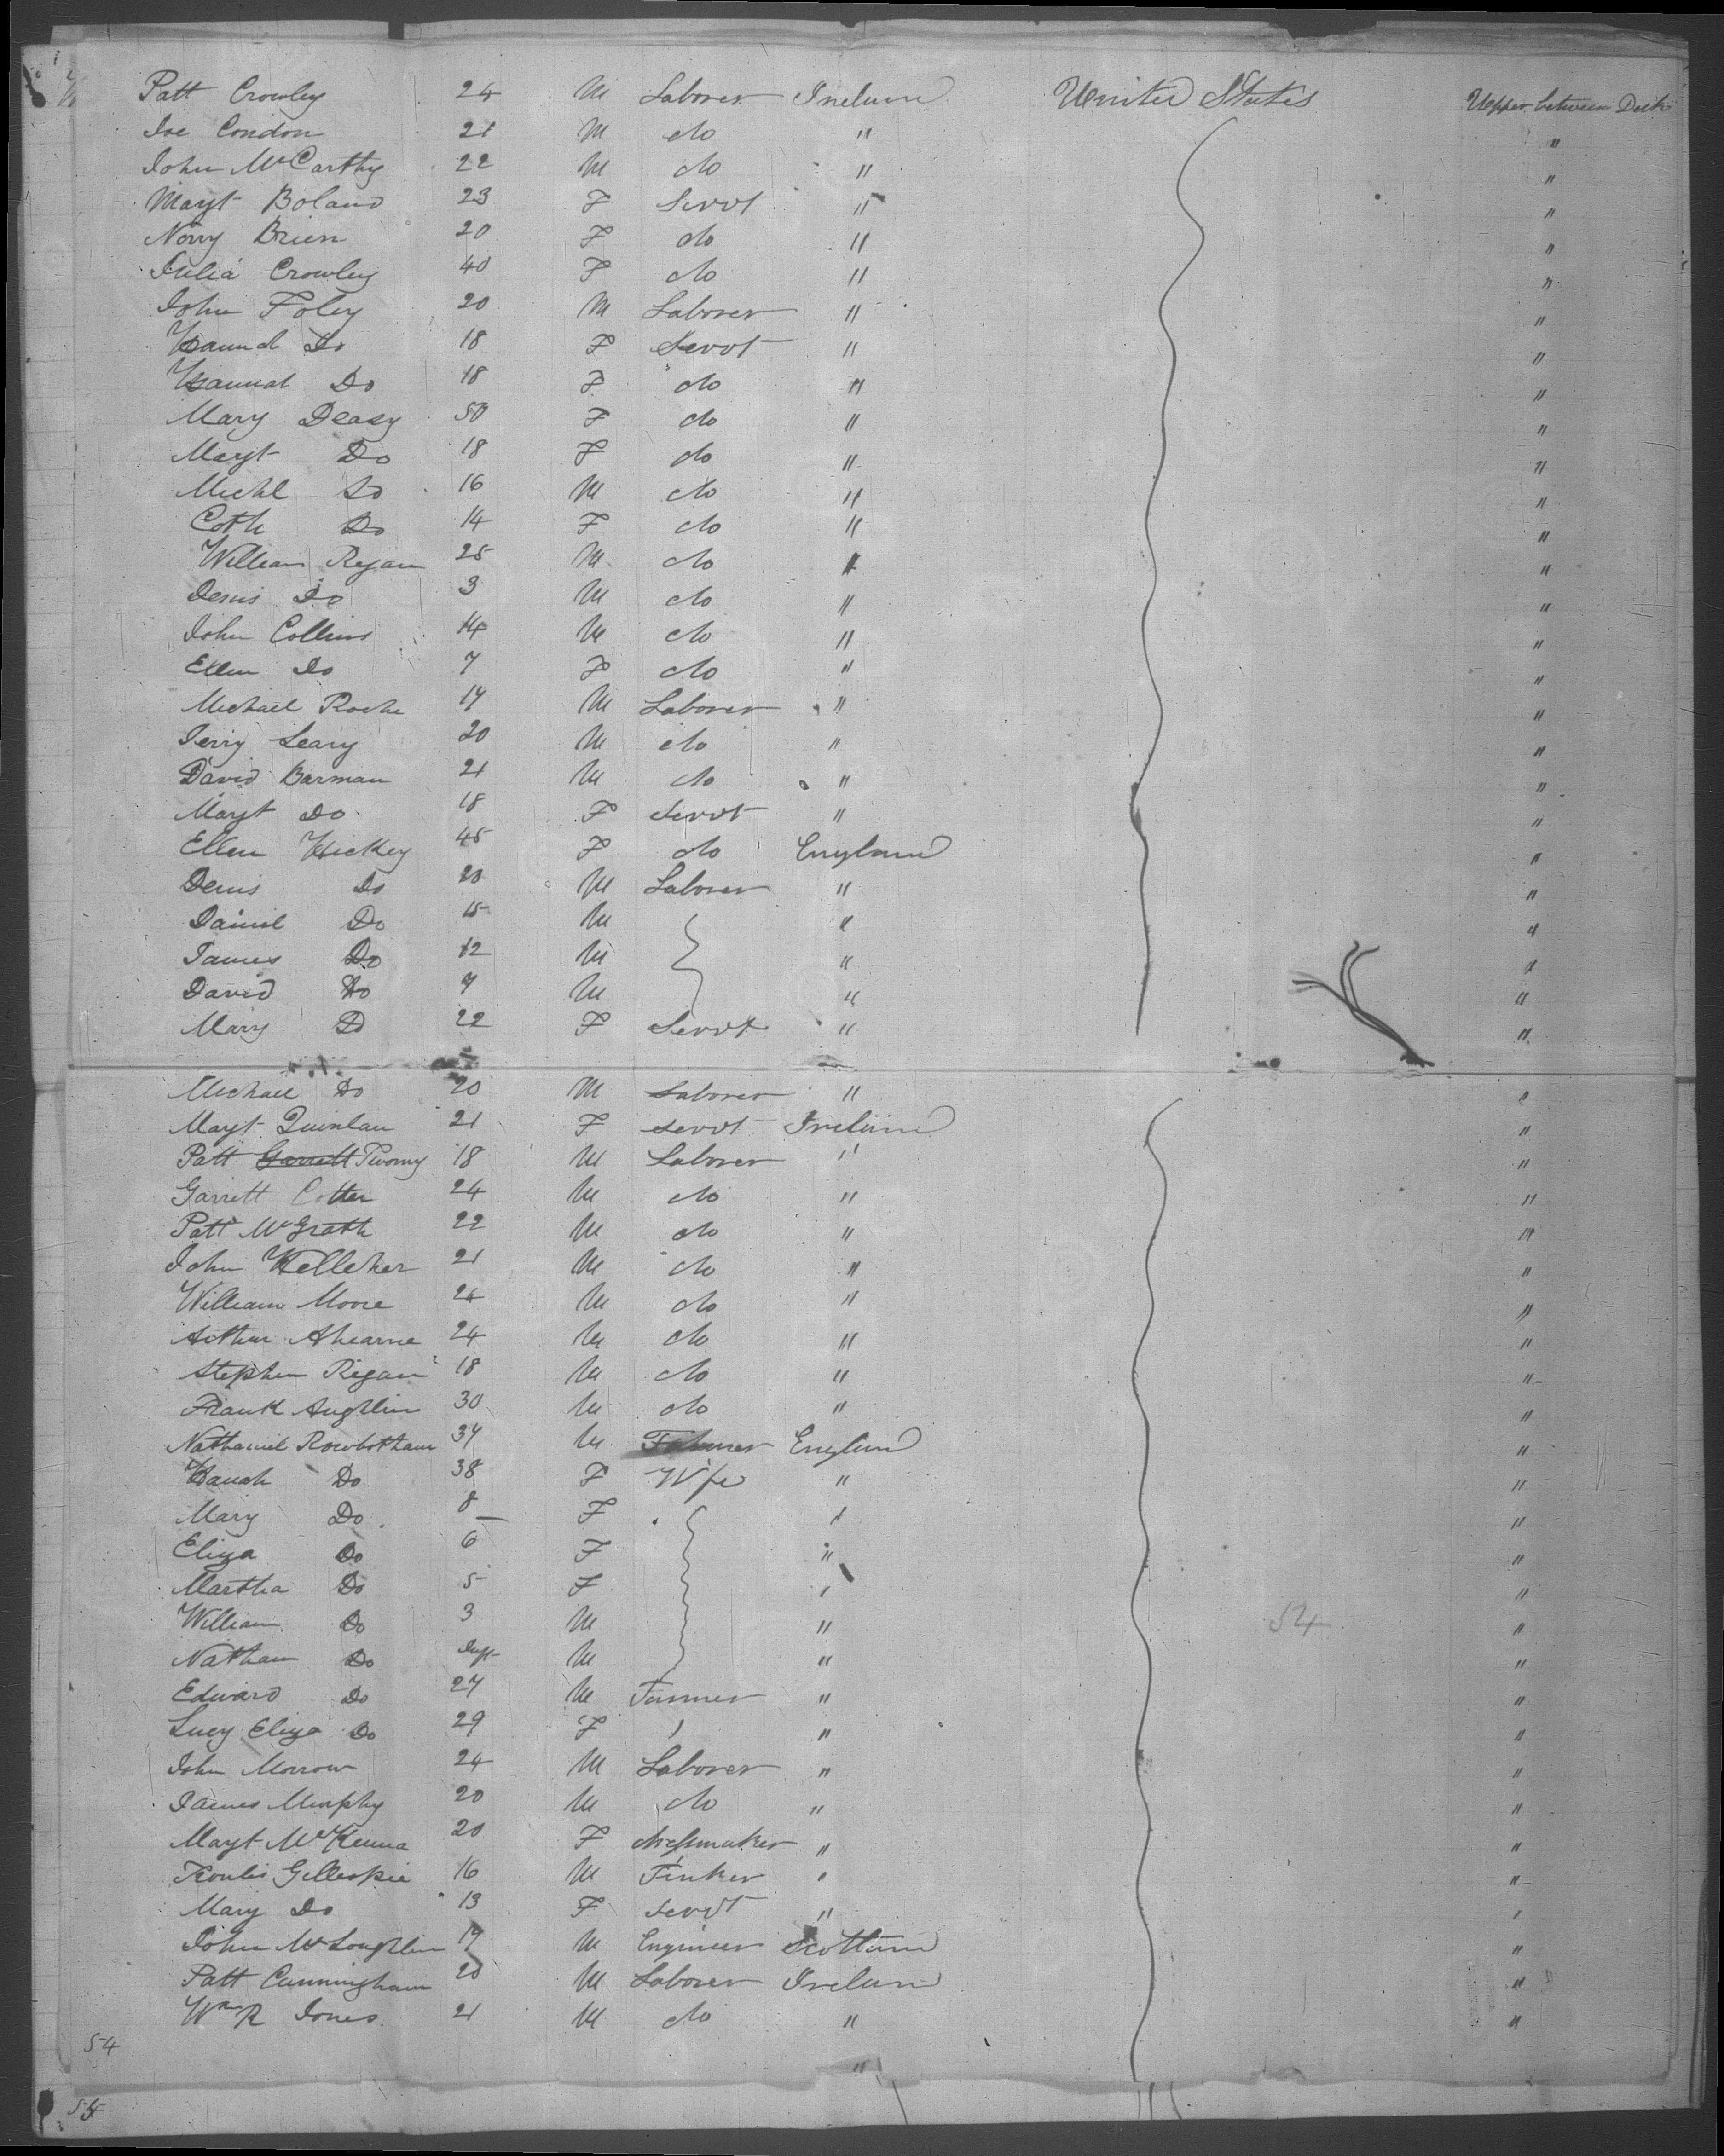 Patt Crowley 24 M Laborer Ireland United States Upper between Deck
Joe Condon 21 M do " "
John McCarthy 22 M do " "
Margt Boland 23 F Servt " "
Norry Brien 20 F do " "
Julia Crowley 40 F do " "
John Foley 20 M Laborer " "
Hannah Do 18 F Servt " "
Hannah Do 18 F do " "
Mary Deasy 50 F do " "
Margt Do 18 F do " "
Michl Do 16 M do " "
Cath Do 14 F do " "
William Regan 25 M do " "
Denis Do 3 M do " "
John Collins 14 M do " "
Ellen Do 7 F do " "
Michael Roche 19 M Laborer " "
Jerry Leary 20 M do " "
David Barman 21 M do " "
Margt Do 18 F Servt " "
Ellen Hickey 45 F do England "
Denis Do 20 M Laborer " "
Daniel Do 15 M " "
James Do 12 M " "
David Do 9 M " "
Mary Do 22 F Servt " "
Michael Do 20 M Laborer " "
Margt Quinlan 21 F Servt Ireland "
Patt Garrett Twomy 18 M Laborer " "
Garrett Cotter 24 M do " "
Patt McGrath 22 M do " "
John Kelleher 21 M do " "
William Moore 24 M do " "
Arthur Ahearne 24 M do " "
Stephen Regan 18 M do " "
Frank Aughlin 30 M do " "
Nathaniel Rowbotham 37 M Farmer England "
Hanah Do 38 F Wife " "
Mary Do 8 F " "
Eliza Do 6 F " "
Martha Do 5 F " "
William Do 3 M " "
Nathan Do Inft M " "
Edward Do 27 M Farmer " "
Lucy Eliza Do 29 F " "
John Morrow 24 M Laborer " "
James Murphy 20 M do " "
Margt McKenna 20 F dressmaker " "
Gillespie 16 M Tinker " "
Mary Do 13 F Servt " "
John McLoughlin 19 M Engineer Scotland "
Patt Cunningham 20 M Laborer Ireland "
Wm R Jones 21 M do " "
54
54
"